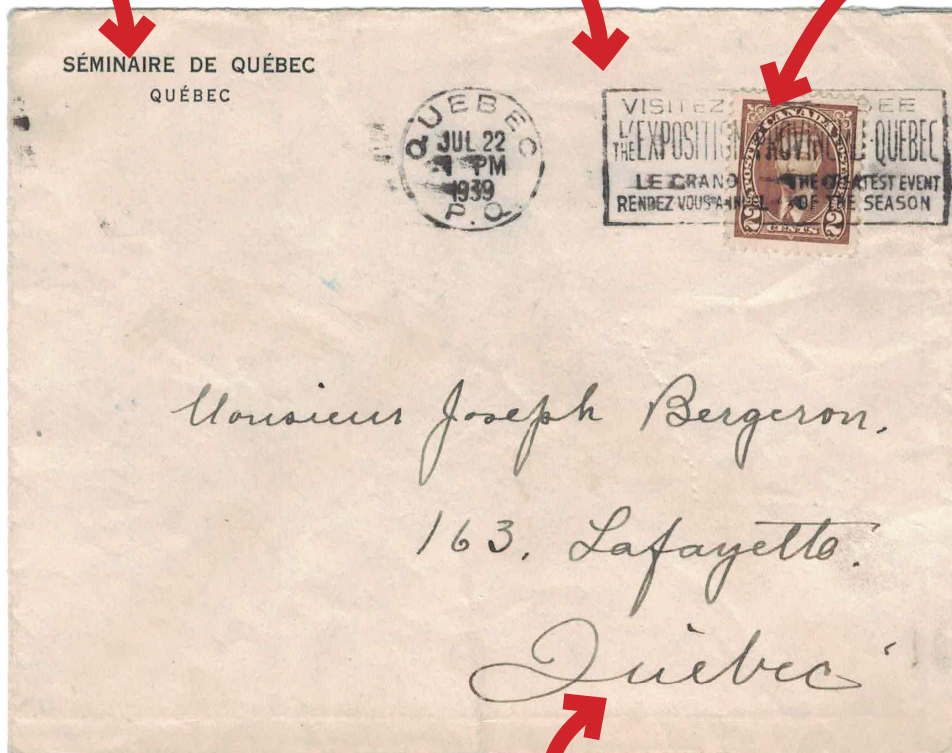 SÉMINAIRE DE QUÉBEC
QUÉBEC
QUEBEC
JUL 22
PM
1939
P.Q.
VISITEZ SEE
L'EXPOSITION PROVINCIALE QUEBEC
THE
LE GRAND THE GREATEST EVENT
RENDEZ VOUS ANNUEL OF THE SEASON
POSTES CANADA POSTAGE
2 CENTS 2
Monsieur Joseph Bergeron.
163, Lafayette.
Québec